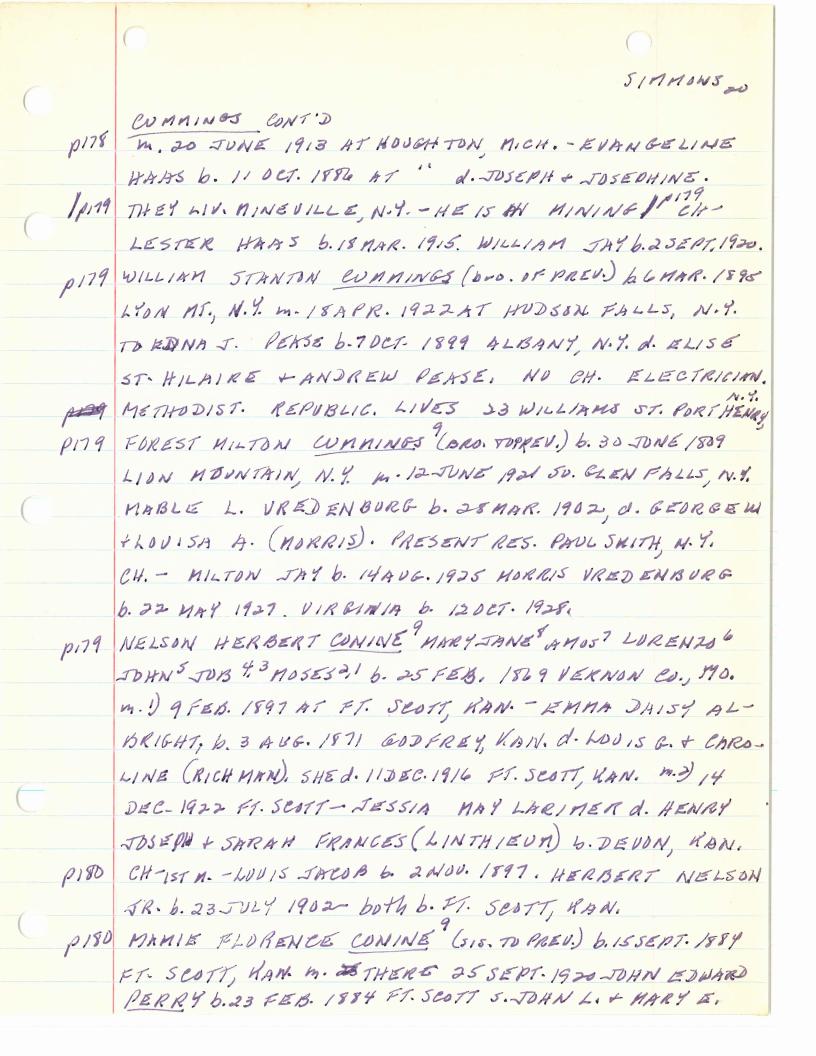 SIMMONS 20
CUMMINGS CONT'D
p178 m. 20 JUNE 1913 AT HOUGHTON, MICH. - EVANGELINE
HAAS b. 11 OCT. 1886 AT " d. JOSEPH + JOSEPHINE.
/p179 THEY LIV. MINEVILLE, N.Y. - HE IS IN MINING // p179 CH-
LESTER HAAS b. 18 MAR. 1915. WILLIAM JAY b. 2 SEPT. 1920.
p179 WILLIAM STANTON CUMMINGS (bro. OF PREV.) b. 6 MAR. 1895
LYON MT., N.Y. m. 18 APR. 1922 AT HUDSON FALLS, N.Y.
TO EDNA J. PEASE b. 7 OCT. 1899 ALBANY, N.Y. d. ELISE
ST. HILAIRE + ANDREW PEASE. NO CH. ELECTRICIAN.
p179 METHODIST. REPUBLIC. LIVES 23 WILLIAMS ST. PORT HENRY, N.Y.
P179 FOREST MILTON CUMMINGS⁹ (BRO. TO PREV.) b. 30 JUNE 1809
LION MOUNTAIN, N.Y. m. 12 JUNE 1921 SO. GLEN FALLS, N.Y.
MABLE L. VREDENBURG b. 28 MAR. 1902, d. GEORGE W
+ LOUISA A. (MORRIS). PRESENT RES. PAUL SMITH, N.Y.
CH. - MILTON JAY b. 14 AUG. 1925 MORRIS VREDENBURG
b. 22 MAY 1927. VIRGINIA b. 12 OCT. 1928.
p179 NELSON HERBERT CONINE⁹ MARY JANE⁸ AMOS⁷ LORENZO⁶
JOHN⁵ JOB⁴,³ MOSES²,¹ b. 25 FEB. 1869 VERNON CO., MO.
m. 1) 9 FEB. 1897 AT FT. SCOTT, KAN. - EMMA DAISY AL-
BRIGHT, b. 3 AUG. 1871 GODFREY, KAN. d. LOUIS G. + CARO-
LINE (RICHMAN). SHE d. 11 DEC. 1916 FT. SCOTT, KAN. m. 2) 14
DEC- 1922 FT. SCOTT - JESSIA MAY LARIMER d. HENRY
JOSEPH + SARAH FRANCES (LINTHIEUM) b. DEVON, KAN.
p180 CH- 1ST M. - LOUIS JACOB b. 2 NOV. 1897. HERBERT NELSON
JR. b. 23 JULY 1902 - both b. FT. SCOTT, KAN.
p180 MAMIE FLORENCE CONINE⁹ (SIS. TO PREV.) b. 15 SEPT. 1884
FT. SCOTT, KAN. m. THERE 25 SEPT. 1920 JOHN EDWARD
PERRY b. 23 FEB. 1884 FT. SCOTT S. JOHN L. + MARY E.